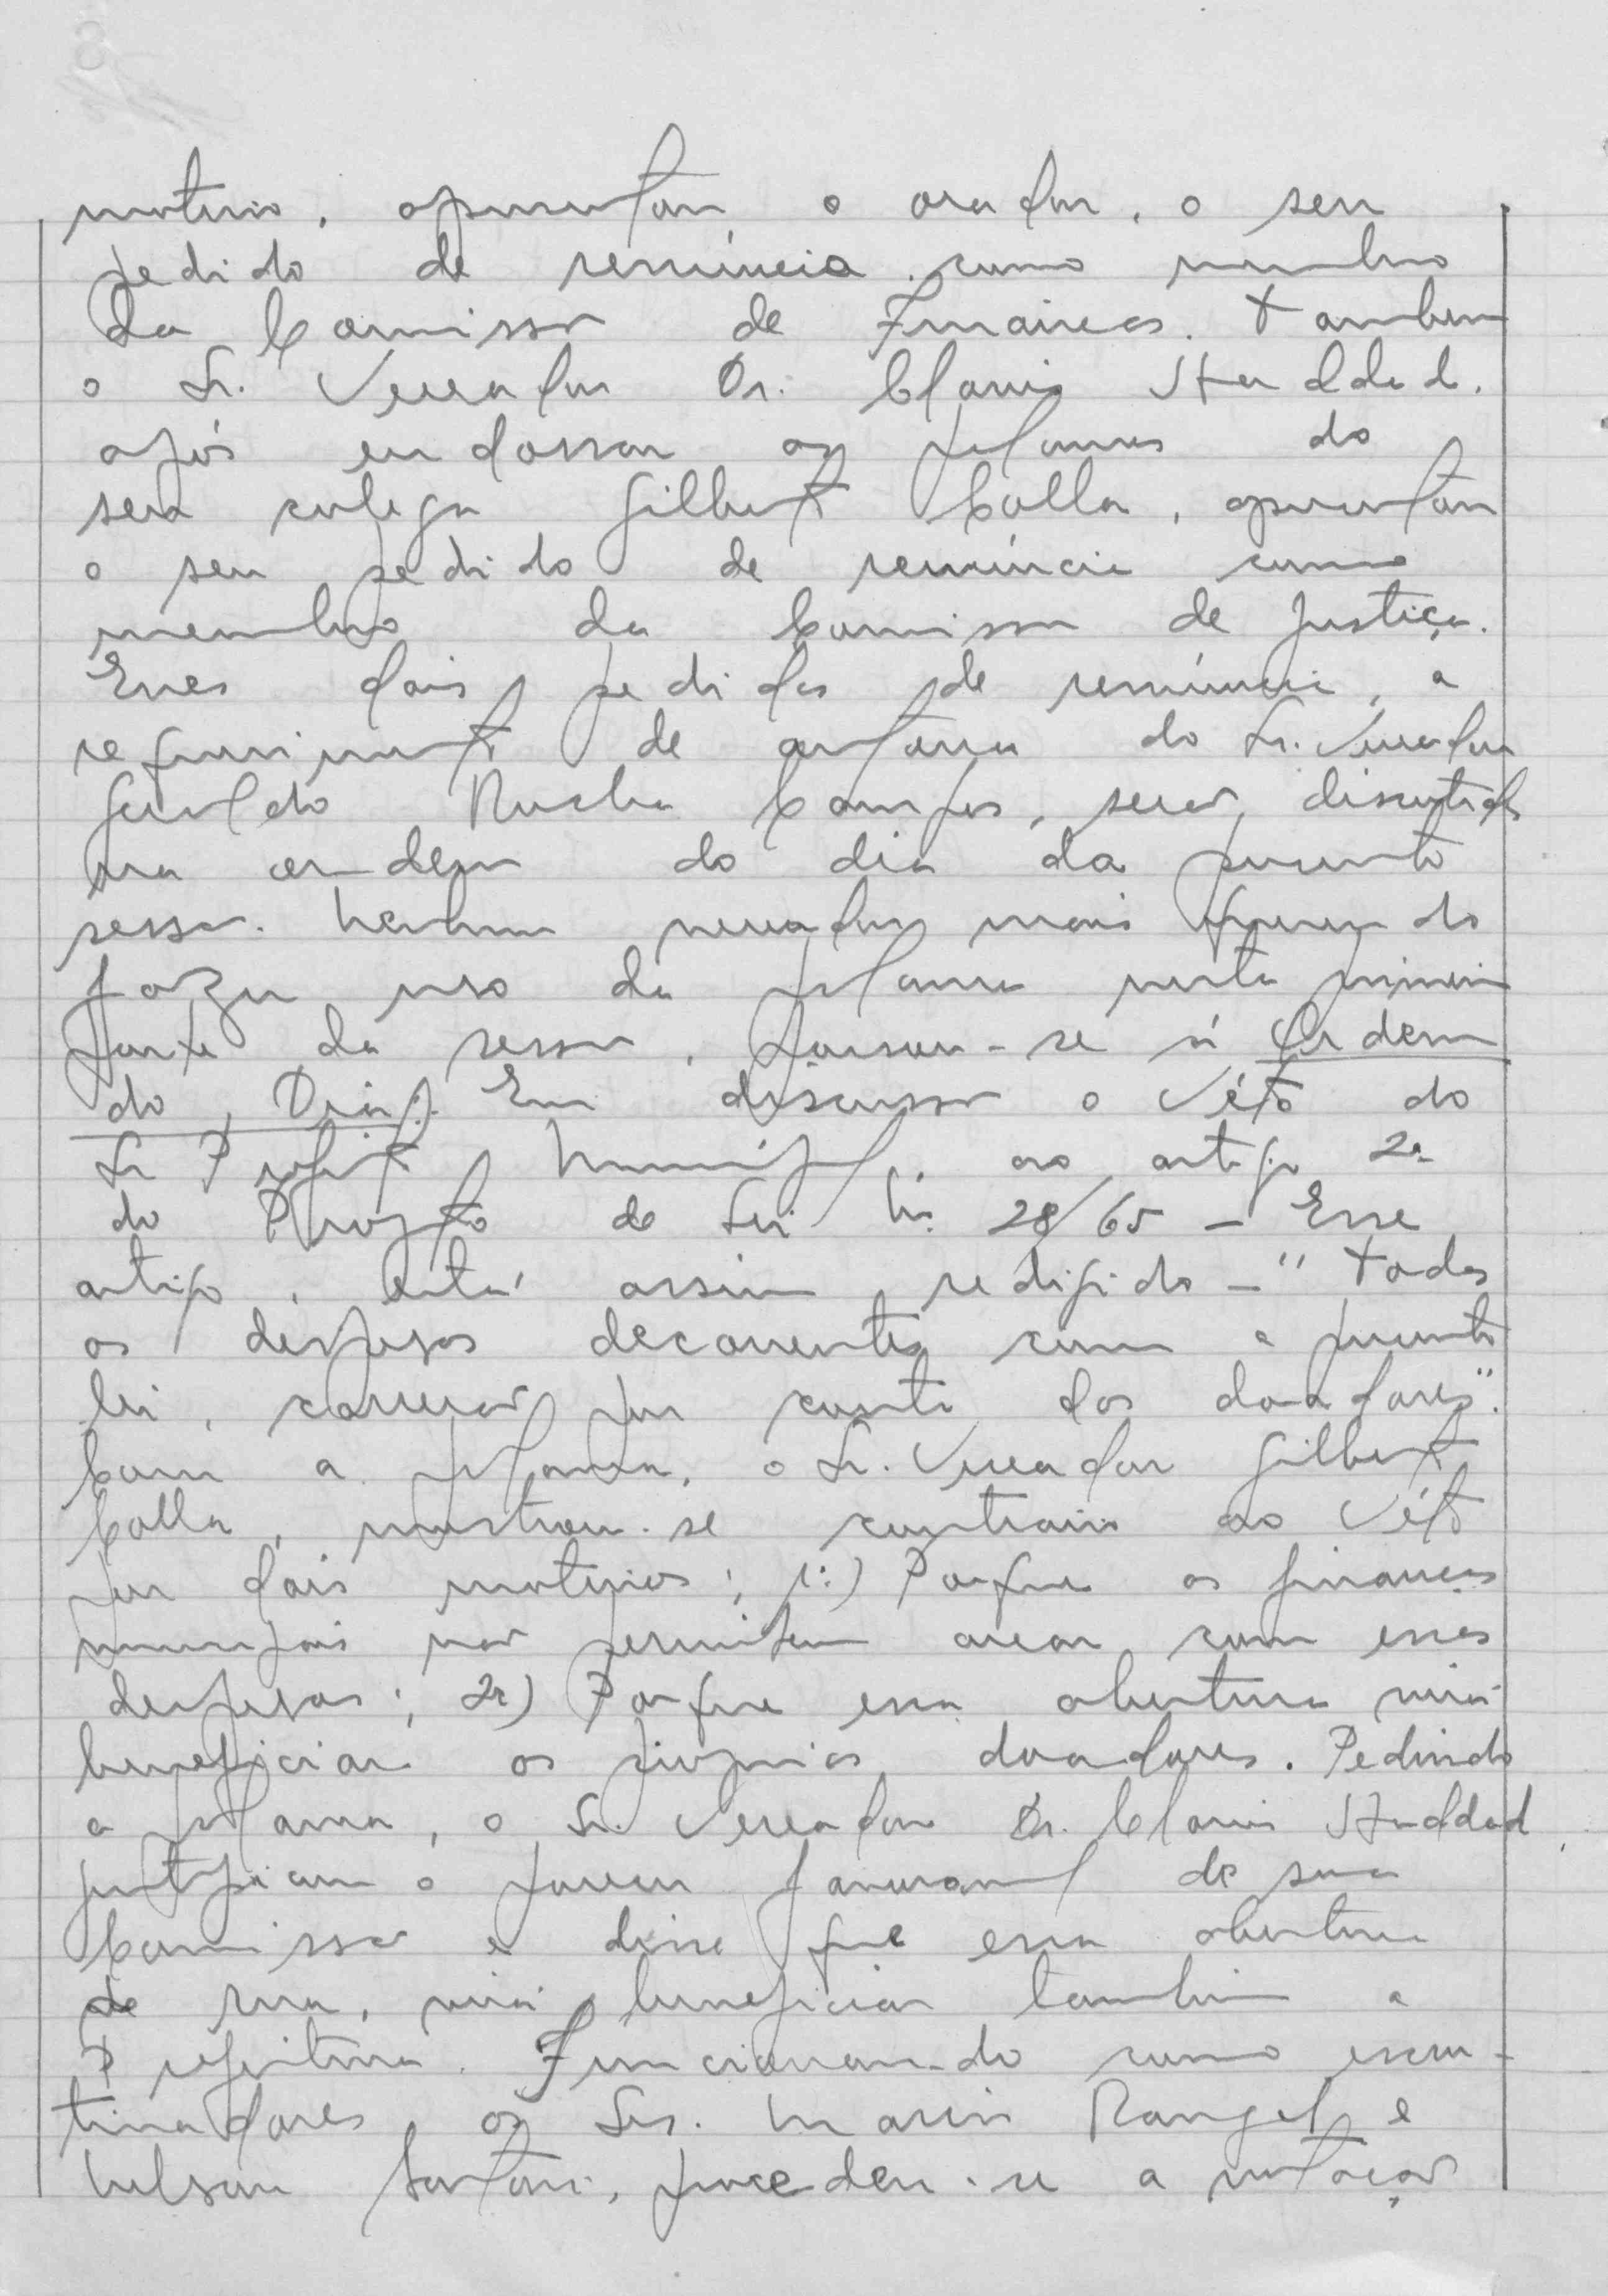 motivo, apresentou o orador, o seu
pedido de renúncia como membro
da Comissão de Finanças. Tambem
o Sr. Vereador Dr. Clovis Haddad,
após endossar as palavras do
seu colega Gilberto Colla, apresentou
o seu pedido de renúncia como
membro da Comissão de Justiça.
Esses dois pedidos de renúncia, a
requerimento de autoria do Sr. Vereador
Geraldo Rocha Campos, serão discutidos
na ordem do dia da presente
sessão. Nenhum vereador mais querendo
fazer uso da palavra nesta primeira
parte da sessão, passou-se à Ordem
do Dia: Em discussão o Véto do
Sr Prefeito Municipal, ao artigo 2º
do Projeto de Lei Nº 28/65 - Esse
artigo, está assim redigido - "Todas
as despesas decorrentes com a presente
lei, correrão por conta dos doadores".
Com a palavra, o Sr. Vereador Gilberto
Colla, mostrou-se contrario ao Véto
por dois motivos; 1º) Porque as finanças
municipais não permitem arcar com essas
despesas; 2º) Porque essa abertura virá
beneficiar os proprios doadores. Pedindo
a palavra, o Sr. Vereador Dr. Clovis Haddad,
justificou o parecer favoravel de sua
Comissão e disse que essa abertura
de rua, virá beneficiar também a
Prefeitura. Funcionando como escru-
tinadores os Srs. Mario Rangel e
Nelson Sartori, procedeu-se a votação